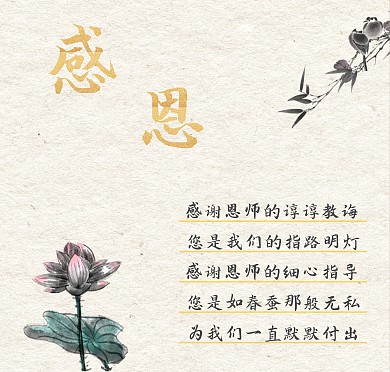 感恩
感谢恩师的谆谆教诲
您是我们的指路明灯
感谢恩师的细心指导
您是如春蚕那般无私
为我们一直默默付出